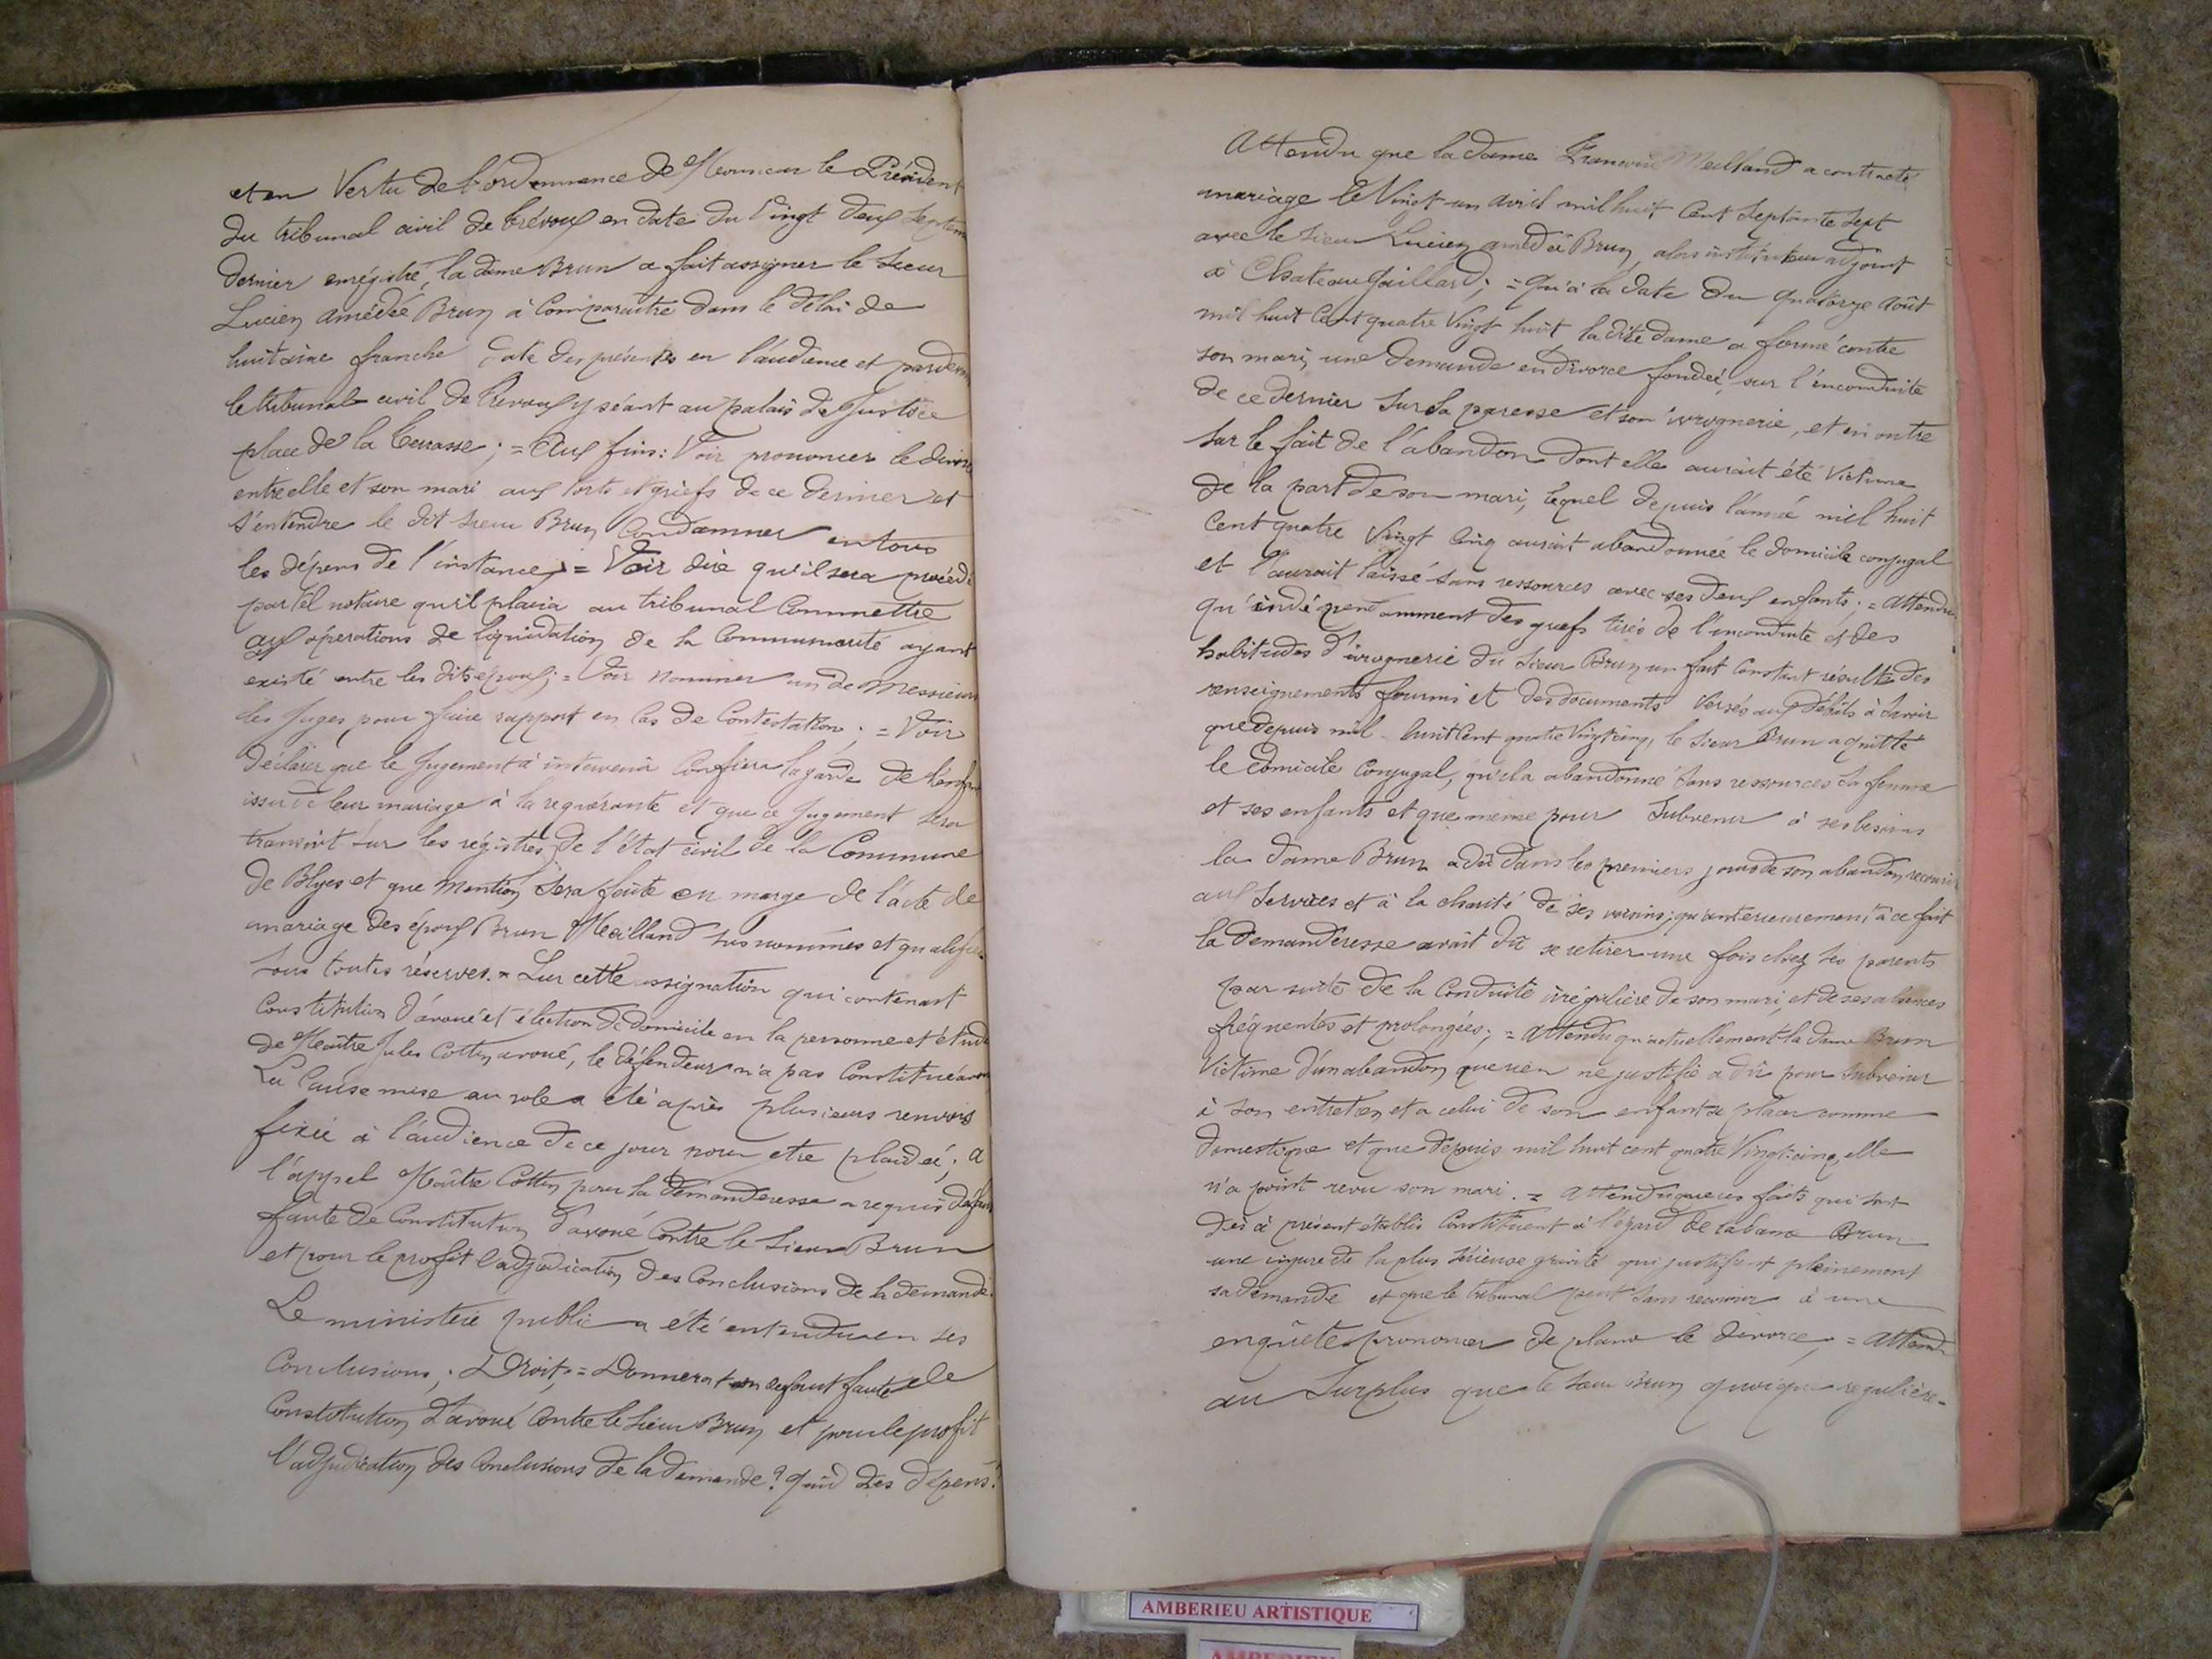 et en Vertu de l'ordonnance de Monsieur le Président
du tribunal civil de Trévoux en date du Vingt deux Septem
dernier enrégistré, la dame Brun a fait assigner le Sieur
Lucien Amédée Brun à Comparaître dans le délai de
huitaine franche date des présentes en l'audience et pardevan
le tribunal civil de Trévoux y séant au palais de Justice
place de la Terrasse ; = Aux fins : Voir prononcer le divorce
entre elle et son mari aux torts et griefs de ce dernier et
s'entendre le dit sieur Brun Condamner en tous
les dépens de l'instance ; = Voir dire qu'il sera procédé
par tel notaire qu'il plaira au tribunal Commettre
aux opérations de liquidation de la Communauté ayant
existé entre les dits époux ; = Voir nommer un de Messieurs
les Juges pour faire rapport en Cas de Contestation ; = Voir
déclarer que le Jugement à intervenir Confiera la garde de l'enfan
issu de leur mariage à la requérante et que ce Jugement sera
transcrit sur les régistres de l'état civil de la Commune
de Blyes et que Mention sera faite en marge de l'acte de
mariage des époux Brun Meilland sus nommés et qualifiés
sous toutes réserves. = Sur cette assignation qui contenant
Constitution d'avoué et élection de domicile en la personne et étude
de Maître Jules Cottin avoué, le défendeur n'a pas Constitué avoué
La Cause mise au role a été après plusieurs renvois
fixée à l'audience de ce jour pour etre plaidée ; A
l'appel Maître Cottin pour la demanderesse a requis défaut
faute de Constitution d'avoué Contre le Sieur Brun
et pour le profit l'adjudication des Conclusions de la demande.
Le ministère public a été entendu en ses
Conclusions ; Droit ; = Donnera t on defaut faute de
Constitution d'avoué Contre le Sieur Brun et pour le profit
l'adjudication des Conclusions de la demande ? Quid des dépens ?
Attendu que la dame Meilland a contracté
mariage le Vingt un Avril mil huit Cent Septante Sept
avec le Sieur Lucien amédée Brun, alors instituteur adjoint
à Chateau Gaillard ; = Qu'à la date du Quatorze Août
mil huit Cent quatre Vingt huit la dite dame a formé contre
son mari, une demande en divorce fondée, sur l'inconduite
de ce dernier Sur sa paresse et son ivrognerie, et en outre
Sur le fait de l'abandon dont elle aurait été Victime
de la part de son mari, lequel depuis l'année mil huit
Cent quatre Vingt Cinq aurait abandonnée le domicile conjugal
et l'aurait laissé sans ressources avec ses deux enfants ; = Attendu
qu'indépendamment des griefs tirés de l'inconduite et des
habitudes d'ivrognerie du Sieur Brun un fait Constant résulte des
renseignements fournis et des documents Versés aux débats à Savoir
que depuis mil huit Cent quatre Vingt cinq, le Sieur Brun a quitté
le domicile Conjugal, qu'il a abandonné sans ressources sa femme
et ses enfants et que meme pour Subvenir à ses besoins
la dame Brun a dû dans les premiers jours de son abandon recourir
aux services et à la charité de ses voisins ; qu'anterieurement à ce fait
la demanderesse avait dû se retirer une fois chez ses parents
par suite de la Conduite irégulière de son mari, et de ses absences
fréquentes et prolongées ; = Attendu qu'actuellement la dame Brun
Victime d'un abandon que rien ne justifie a dû pour Subvenir
à son entretien et a celui de son enfant se placer comme
domestique et que depuis mil huit cent quatre Vingt cinq, elle
n'a point revu son mari. = Attendu que ces faits qui sont
dès à présent établis Constituent à l'égard de la dame Brun
une injure de la plus sérieuse gravité qui justifient pleinement
sa demande et que le tribunal peut sans recourir à une
enquête prononcer de plano le divorce ; = Attendu
au Surplus que le Sieur Brun quoique regulière-
AMBERIEU ARTISTIQUE
AMBERIEU